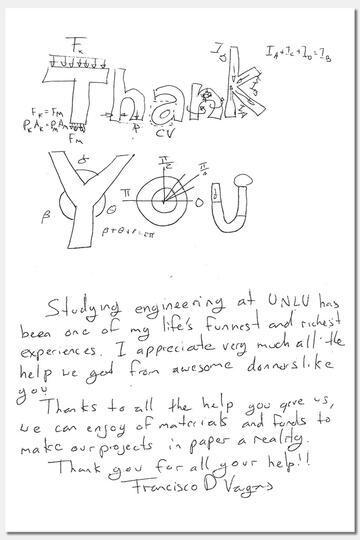 Thank
F_k
F_k = F_M
P_k A_k = P_M A_M
F_M
P
CV
I_D
I_A + I_C + I_D = I_B
You
α
β
θ
π/2
π/4
π
0
Studying engineering at UNLV has
been one of my life's funnest and richest
experiences. I appreciate very much all the
help we get from awesome donners like
you.
Thanks to all the help you give us,
we can enjoy of materials and funds to
make our projects in paper a reality.
Thank you for all your help!!
Francisco D Vargas